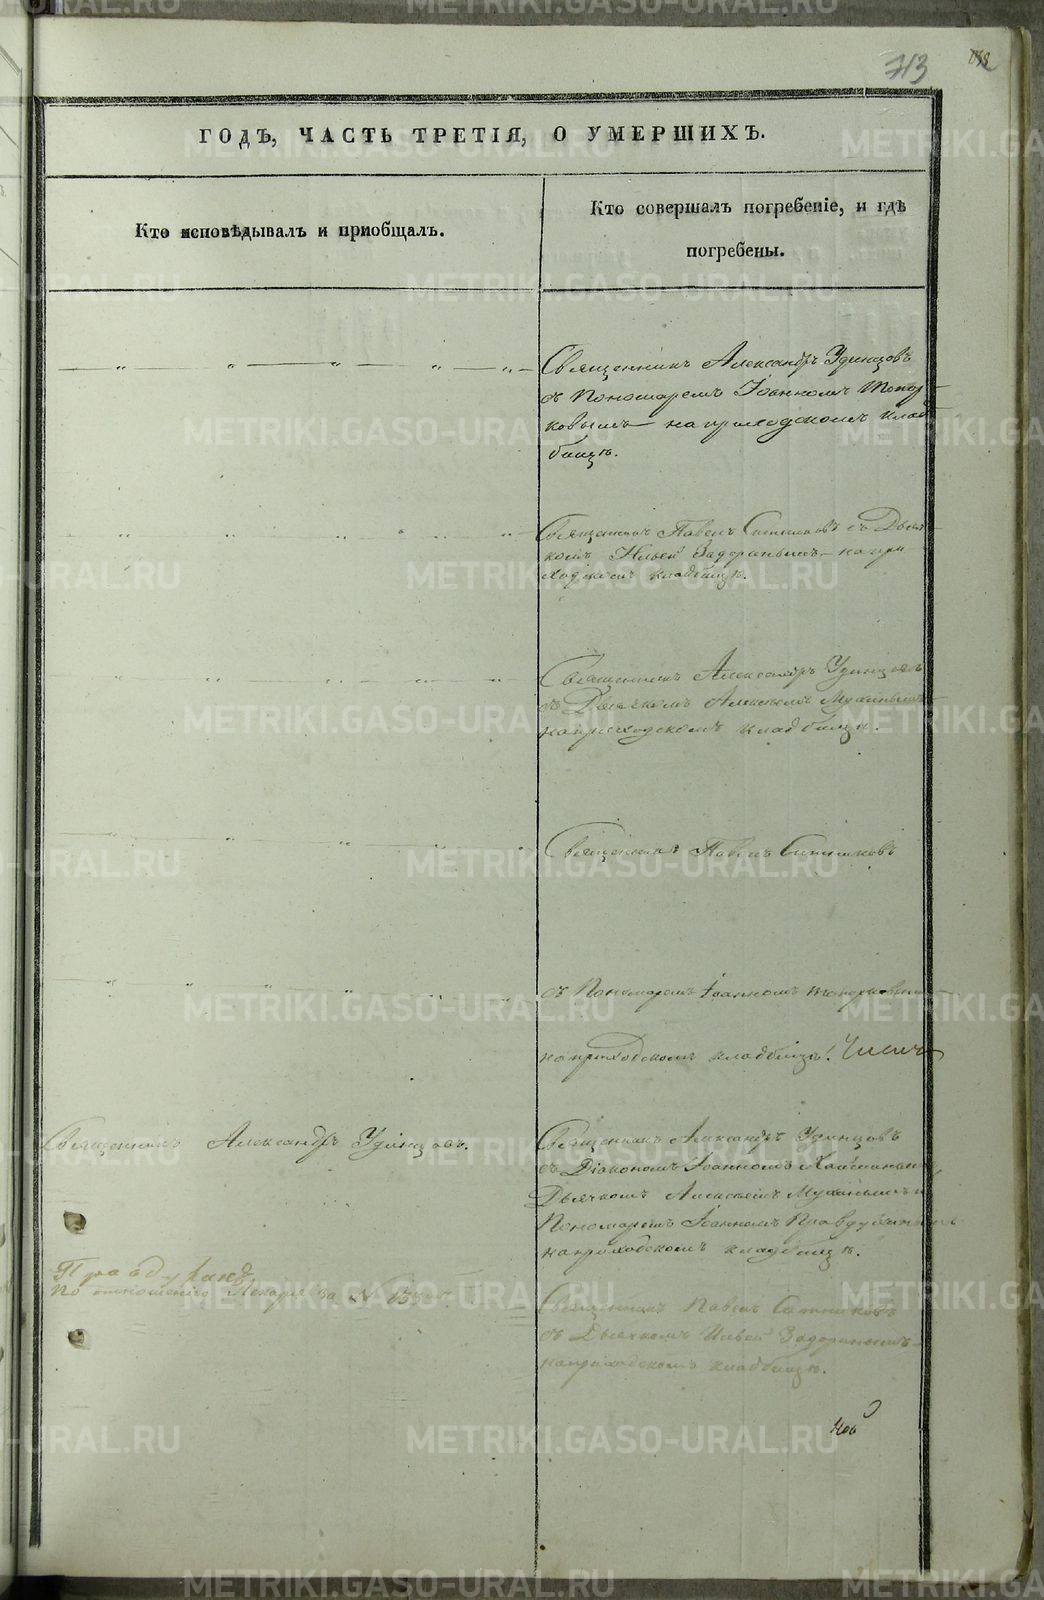 713
ГОДЪ, ЧАСТЬ ТРЕТІЯ, О УМЕРШИХЪ.
Кто исповѣдывалъ и пріобщалъ.
Кто совершалъ погребеніе, и гдѣ
погребены.
Священникъ Александръ Удинцовъ
съ Пономаремъ Іоанномъ Топор-
ковымъ на приходскомъ клад-
бищѣ.
Священникъ Павелъ Ситниковъ съ Дьяч-
комъ Ильей Задоринымъ на при
ходскомъ кладбищѣ.
Священникъ Александръ Удинцовъ
съ Дьячкомъ Алексѣемъ Мухинымъ
на приходскомъ кладбищѣ.
Священникъ Павелъ Ситниковъ
съ Пономаремъ Іоанномъ Топорковымъ
на приходскомъ кладбищѣ.
Священникъ Александръ Удинцовъ.
Священникъ Александръ Удинцовъ
съ Діакономъ Іоанномъ
Дьячкомъ Алексѣемъ Мухинымъ и
Пономаремъ Іоанномъ
на приходскомъ кладбищѣ.
По отношенію Лекаря за №
Священникъ Павелъ Ситниковъ
съ Дьячкомъ Ильей Задоринымъ
на приходскомъ кладбищѣ.
METRIKI.GASO-URAL.RU